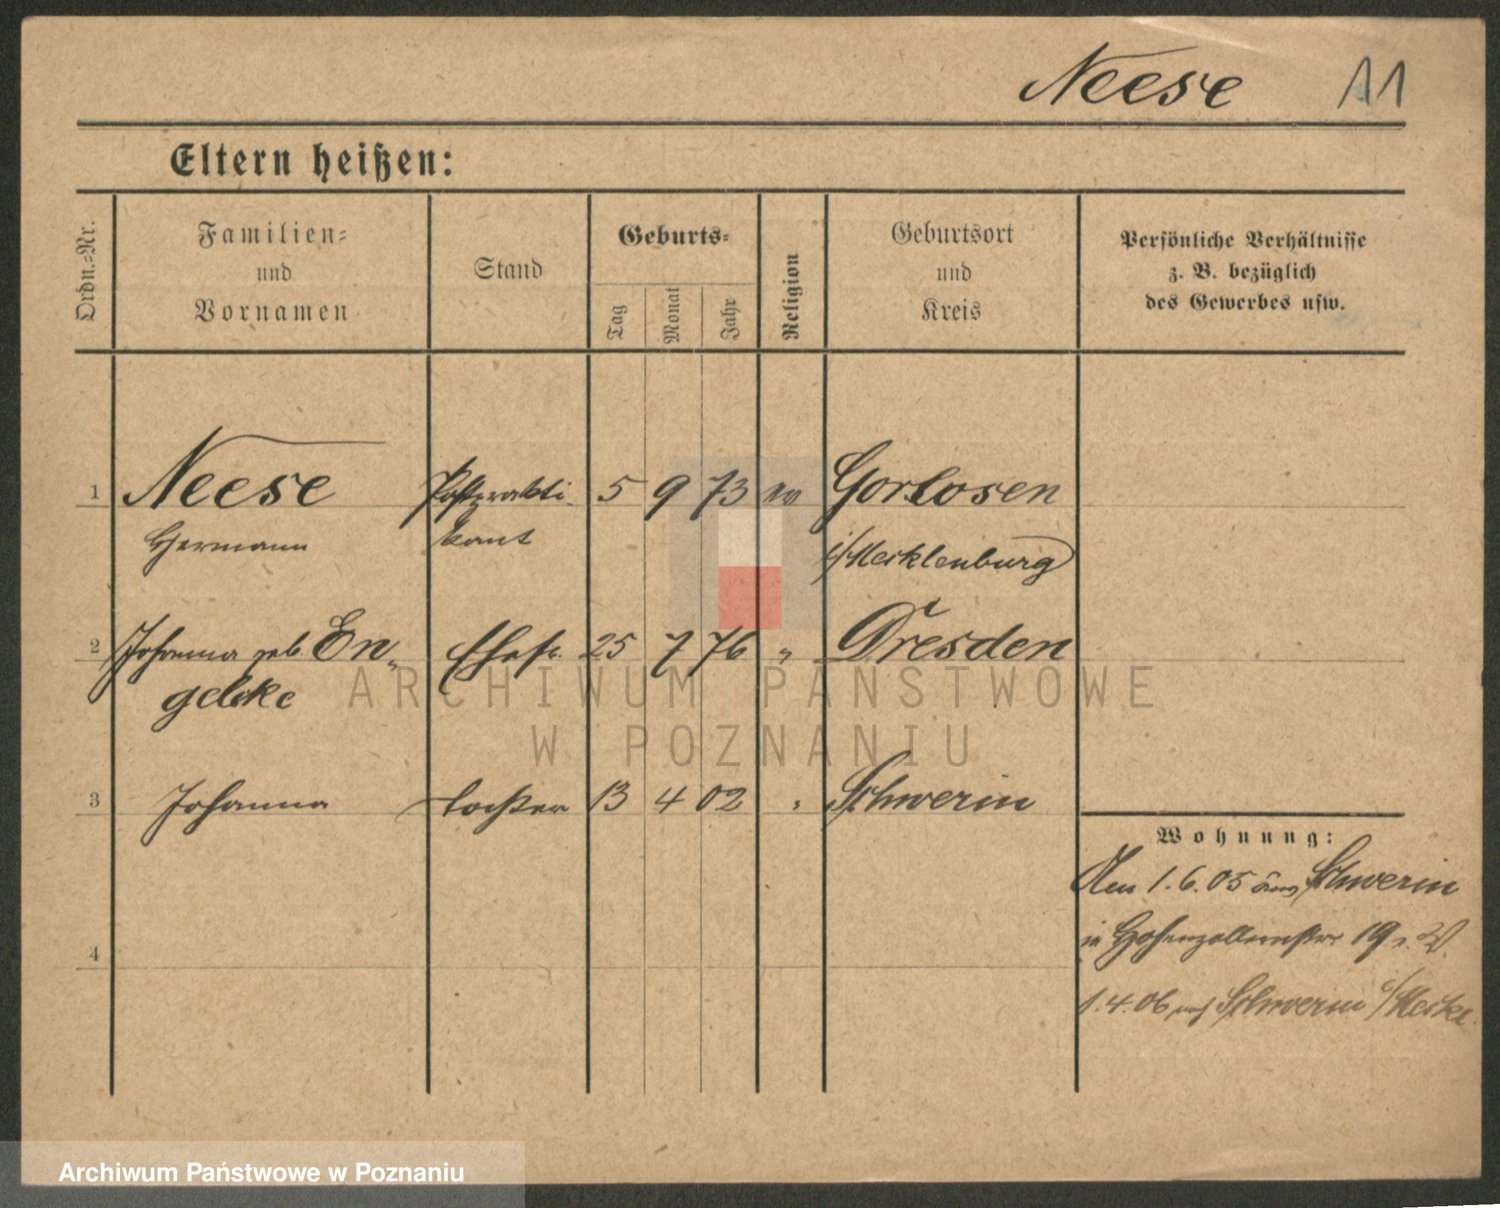 Neese 11
Eltern heißen:
Ordn.-Nr.
Familien-
und
Vornamen
Stand
Geburts-
Tag
Monat
Jahr
Religion
Geburtsort
und
Kreis
Persönliche Verhältnisse
z. B. bezüglich
des Gewerbes usw.
1 Neese Postprakti- 5 9 73 ev Gorlosen
Hermann kant i/Mecklenburg
2 Johanna geb En- Ehefr. 25 7 76 " Dresden
gelcke
3 Johanna Tochter 13 4 02 " Schwerin
4
Wohnung:
Am 1.6.05 aus Schwerin
in Hohenzollernstr 19
1.4.06 nach Schwerin i/Meckl.
ARCHIWUM PAŃSTWOWE
W POZNANIU
Archiwum Państwowe w Poznaniu